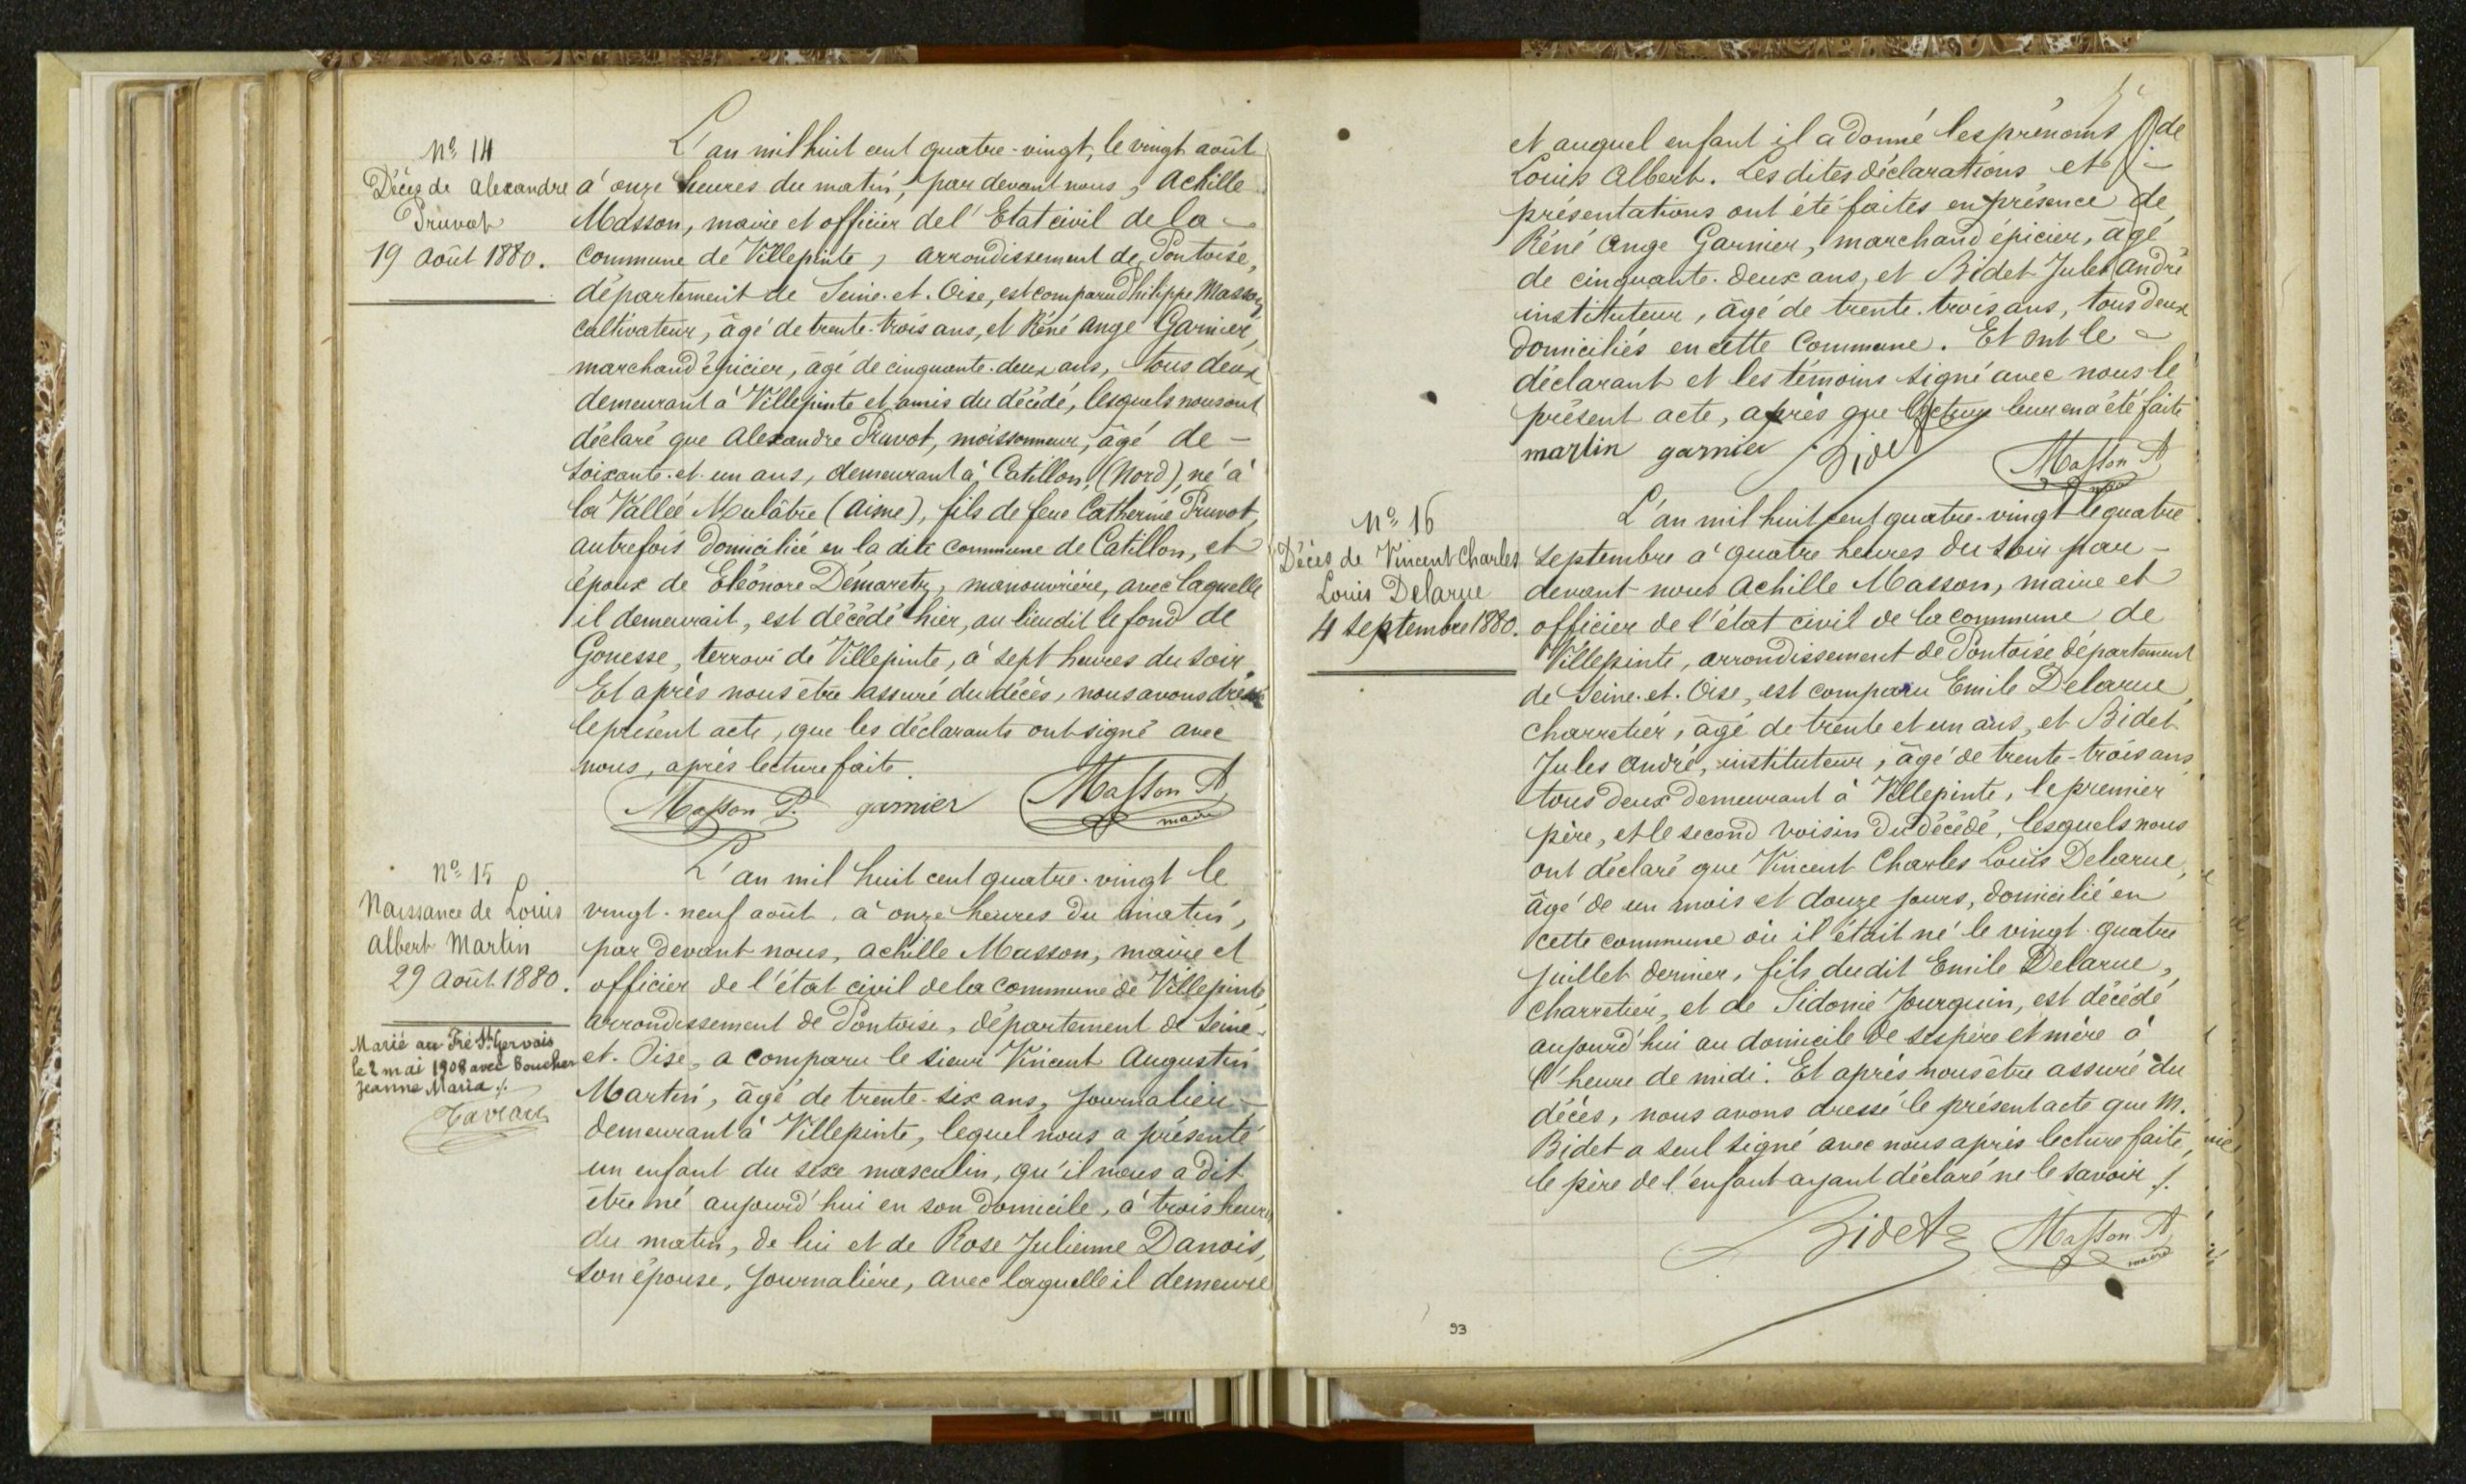 N° 14
Décès de Alexandre
Pruvot
19 Août 1880.
L'an mil huit cent quatre-vingt, le vingt août
à onze heures du matin, par devant nous, Achille
Masson, maire et officier de l'Etat civil de la
Commune de Villepinte, arrondissement de Pontoise,
département de Seine-et-Oise, est comparu Philippe Masson,
cultivateur, âgé de trente-trois ans, et Réné Ange Garnier,
marchand épicier, âgé de cinquante-deux ans, tous deux
demeurant à Villepinte et amis du décédé, lesquels nous ont
déclaré que Alexandre Pruvot, moissonneur, âgé de -
soixante-et-un ans, demeurant à Catillon, (Nord), né à
la Vallée Mulâtre (Aisne), fils de feue Catherine Pruvot,
autrefois domiciliée en la dite commune de Catillon, et
époux de Eléonore Démaretz, manouvrière, avec laquelle
il demeurait, est décédé hier, au lieudit le fond de
Gonesse, terroir de Villepinte, à sept heures du soir
Et après nous être assuré du décès, nous avons dressé
le présent acte, que les déclarants ont signé avec
nous, après lecture faite.
Masson P. garnier Masson A
maire
N° 15
Naissance de Louis
Albert Martin
29 Août 1880.
Marié au Pré St Gervais
le 2 mai 1908 avec Boucher
Jeanne Maria ./.
L'an mil huit cent quatre-vingt le
vingt-neuf août, à onze heures du matin,
par devant nous, Achille Masson, maire et
officier de l'état civil de la commune de Villepinte,
arrondissement de Pontoise, département de Seine-
et-Oise, a comparu le sieur Vincent Augustin
Martin, âgé de trente-six ans, journalier -
demeurant à Villepinte, lequel nous a présenté
un enfant du sexe masculin, qu'il nous a dit
être né aujourd'hui en son domicile, à trois heures
du matin, de lui et de Rose Julienne Danois,
son épouse, journalière, avec laquelle il demeure
et auquel enfant il a donné les prénoms de
Louis Albert. Les dites déclarations et
présentations ont été faites en présence de
Réné Ange Garnier, marchand épicier, âgé
de cinquante-deux ans, et Bidet Jules André
instituteur, âgé de trente-trois ans, tous deux
domiciliés en cette Commune. Et ont le
déclarant et les témoins signé avec nous le
présent acte, après que lecture leur en a été faite
martin garnier Bidet Masson A
maire
N° 16
Décès de Vincent Charles
Louis Delarue
4 Septembre 1880.
L'an mil huit cent quatre-vingt le quatre
Septembre à quatre heures du soir par -
devant nous Achille Masson, maire et
officier de l'état civil de la commune de
Villepinte, arrondissement de Pontoise département
de Seine-et-Oise, est comparu Emile Delarue,
charretier, âgé de trente et un ans, et Bidet
Jules André, instituteur, âgé de trente-trois ans,
tous deux demeurant à Villepinte, le premier
père, et le second voisin du décédé, lesquels nous
ont déclaré que Vincent Charles Louis Delarue,
âgé de un mois et douze jours, domicilié en
cette commune où il était né le vingt-quatre
juillet dernier, fils dudit Emile Delarue,
charretier, et de Sidonie Jourquin, est décédé
aujourd'hui au domicile de ses père et mère à
l'heure de midi. Et après nous être assuré du
décès, nous avons dressé le présent acte que M.
Bidet a seul signé avec nous après lecture faite,
le père de l'enfant ayant déclaré ne le savoir ./.
Bidet Masson A
maire
93